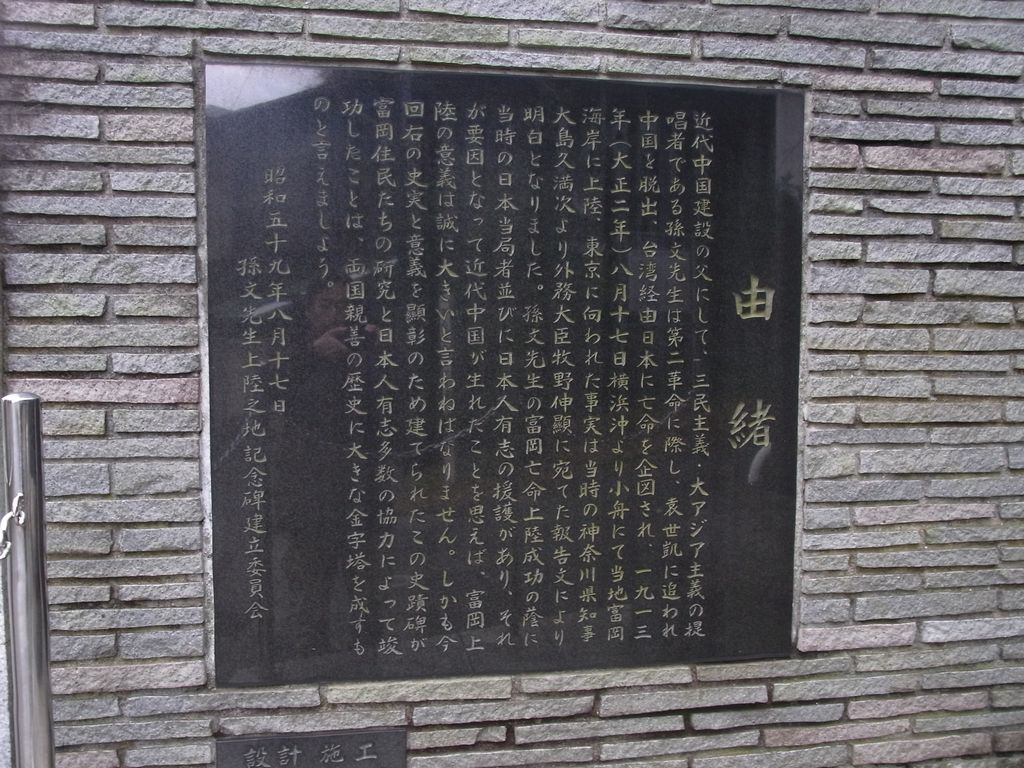 由緒
近代中国建設の父にして、三民主義・大アジア主義の提
唱者である孫文先生は第二革命に際し、袁世凱に追われ
中国を脱出、台湾経由日本に亡命を企図され、一九一三
年(大正二年)八月十七日横浜沖より小舟にて当地富岡
海岸に上陸、東京に向われた事実は当時の神奈川県知事
大島久満次より外務大臣牧野伸顕に宛てた報告文により
明白となりました。孫文先生の富岡亡命上陸成功の蔭に
当時の日本当局者並びに日本人有志の援護があり、それ
が要因となって近代中国が生れたことを思えば、富岡上
陸の意義は誠に大きいと言わねばなりません。しかも今
回右の史実と意義を顕彰のため建てられたこの史蹟碑が
富岡住民たちの研究と日本人有志多数の協力によって竣
功したことは、両国親善の歴史に大きな金字塔を成すも
のと言えましょう。
昭和五十九年八月十七日
孫文先生上陸之地記念碑建立委員会
設計施工